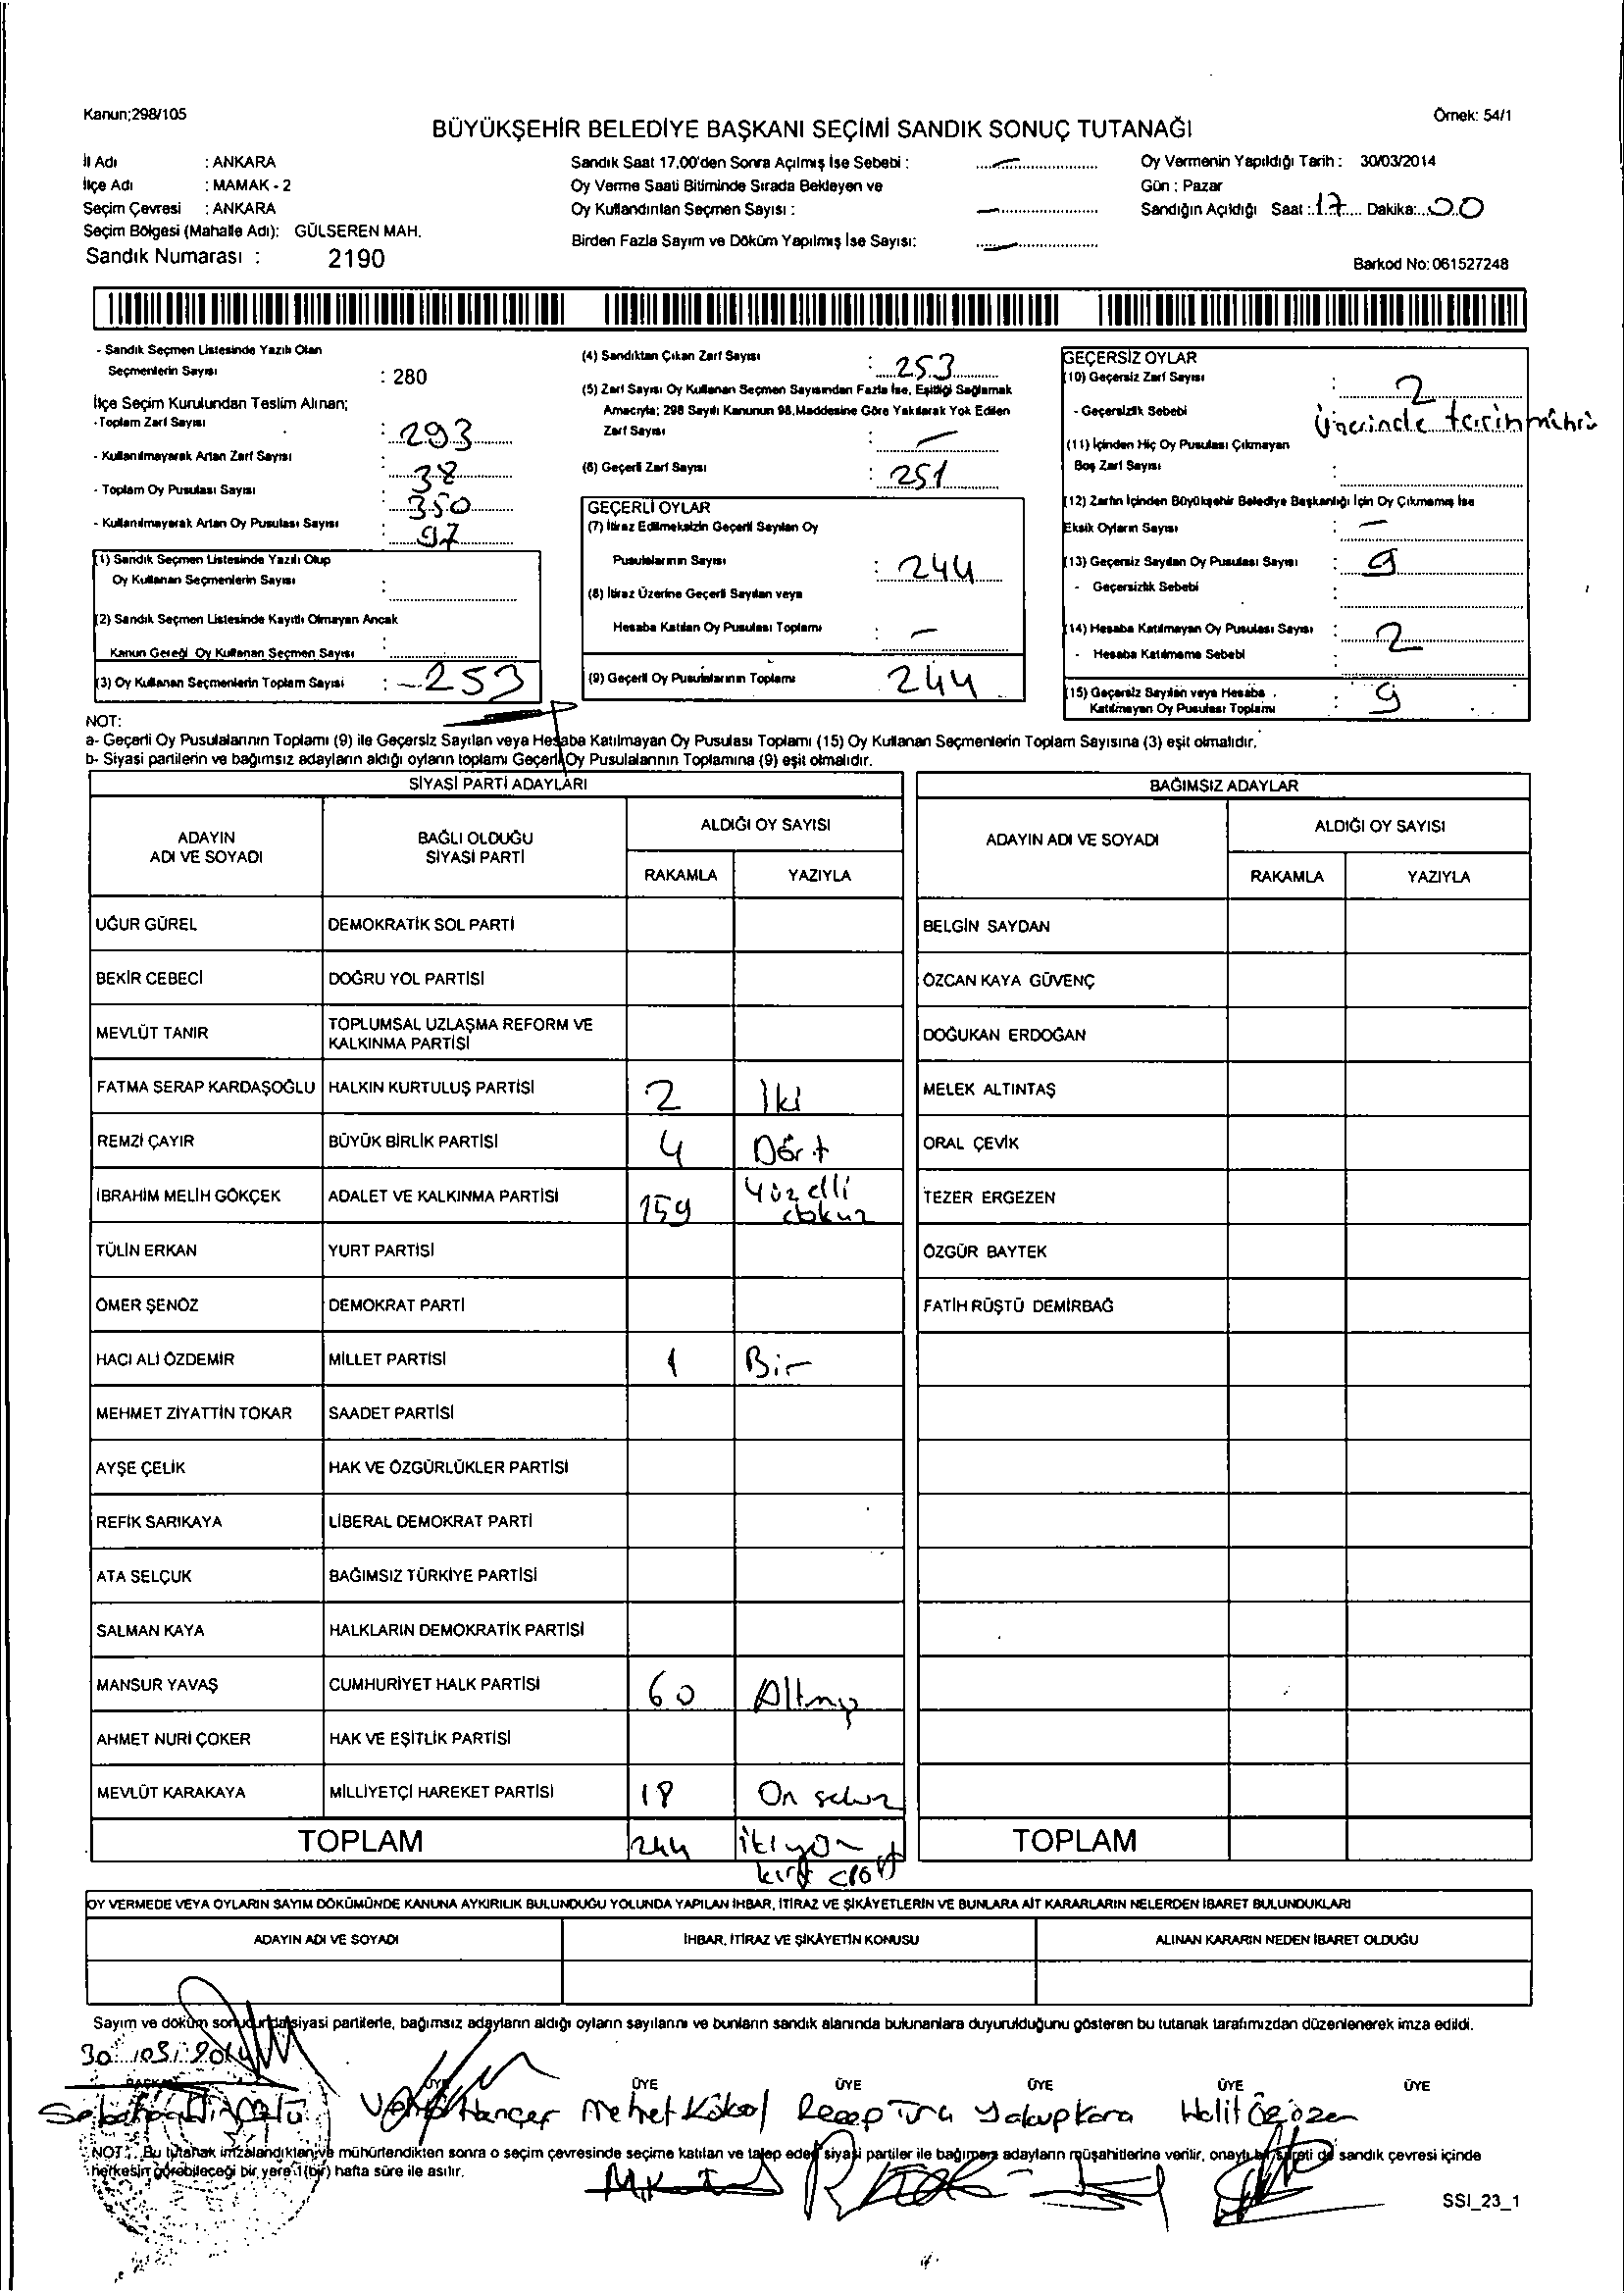 Kanun;298/105
Örnek: 54/1
BÜYÜKŞEHİR BELEDİYE BAŞKANI SEÇİMİ SANDIK SONUÇ TUTANAĞI
İl Adı : ANKARA
İlçe Adı : MAMAK - 2
Seçim Çevresi : ANKARA
Seçim Bölgesi (Mahalle Adı): GÜLSEREN MAH.
Sandık Numarası : 2190
Sandık Saat 17.00'den Sonra Açılmış İse Sebebi :
Oy Verme Saati Bitiminde Sırada Bekleyen ve
Oy Kullandırılan Seçmen Sayısı :
Birden Fazla Sayım ve Döküm Yapılmış İse Sayısı:
Oy Vermenin Yapıldığı Tarih : 30/03/2014
Gün : Pazar
Sandığın Açıldığı Saat : 17 Dakika: 00
Barkod No: 061527248
- Sandık Seçmen Listesinde Yazılı Olan
Seçmenlerin Sayısı : 280
İlçe Seçim Kurulundan Teslim Alınan;
- Toplam Zarf Sayısı : 293
- Kullanılmayarak Artan Zarf Sayısı : 38
- Toplam Oy Pusulası Sayısı : 350
- Kullanılmayarak Artan Oy Pusulası Sayısı : 97
(1) Sandık Seçmen Listesinde Yazılı Olup
Oy Kullanan Seçmenlerin Sayısı :
(2) Sandık Seçmen Listesinde Kayıtlı Olmayan Ancak
Kanun Gereği Oy Kullanan Seçmen Sayısı :
(3) Oy Kullanan Seçmenlerin Toplam Sayısi : 253
(4) Sandıktan Çıkan Zarf Sayısı : 253
(5) Zarf Sayısı Oy Kullanan Seçmen Sayısından Fazla İse, Eşitliği Sağlamak
Amacıyla; 298 Sayılı Kanunun 98.Maddesine Göre Yakılarak Yok Edilen
Zarf Sayısı : –
(6) Geçerli Zarf Sayısı : 251
GEÇERLİ OYLAR
(7) İtiraz Edilmeksizin Geçerli Sayılan Oy
Pusulalarının Sayısı : 244
(8) İtiraz Üzerine Geçerli Sayılan veya
Hesaba Katılan Oy Pusulası Toplamı : –
(9) Geçerli Oy Pusulalarının Toplamı 244
GEÇERSİZ OYLAR
(10) Geçersiz Zarf Sayısı : 2
- Geçersizlik Sebebi : üzerinde tarih mührü
(11) İçinden Hiç Oy Pusulası Çıkmayan
Boş Zarf Sayısı :
(12) Zarfın İçinden Büyükşehir Belediye Başkanlığı İçin Oy Çıkmamış İse
Eksik Oyların Sayısı : –
(13) Geçersiz Sayılan Oy Pusulası Sayısı : 9
- Geçersizlik Sebebi :
(14) Hesaba Katılmayan Oy Pusulası Sayısı : 2
- Hesaba Katılmama Sebebi :
(15) Geçersiz Sayılan veya Hesaba
Katılmayan Oy Pusulası Toplamı : 9
NOT:
a- Geçerli Oy Pusulalarının Toplamı (9) ile Geçersiz Sayılan veya Hesaba Katılmayan Oy Pusulası Toplamı (15) Oy Kullanan Seçmenlerin Toplam Sayısına (3) eşit olmalıdır.
b- Siyasi partilerin ve bağımsız adayların aldığı oyların toplamı Geçerli Oy Pusulalarının Toplamına (9) eşit olmalıdır.
SİYASİ PARTİ ADAYLARI
ADAYIN ADI VE SOYADI BAĞLI OLDUĞU SİYASİ PARTİ ALDIĞI OY SAYISI
RAKAMLA YAZIYLA
UĞUR GÜREL DEMOKRATİK SOL PARTİ
BEKİR CEBECİ DOĞRU YOL PARTİSİ
MEVLÜT TANIR TOPLUMSAL UZLAŞMA REFORM VE KALKINMA PARTİSİ
FATMA SERAP KARDAŞOĞLU HALKIN KURTULUŞ PARTİSİ 2 İki
REMZİ ÇAYIR BÜYÜK BİRLİK PARTİSİ 4 Dört
İBRAHİM MELİH GÖKÇEK ADALET VE KALKINMA PARTİSİ 159 Yüz elli dokuz
TÜLİN ERKAN YURT PARTİSİ
ÖMER ŞENÖZ DEMOKRAT PARTİ
HACI ALİ ÖZDEMİR MİLLET PARTİSİ 1 Bir
MEHMET ZİYATTİN TOKAR SAADET PARTİSİ
AYŞE ÇELİK HAK VE ÖZGÜRLÜKLER PARTİSİ
REFİK SARIKAYA LİBERAL DEMOKRAT PARTİ
ATA SELÇUK BAĞIMSIZ TÜRKİYE PARTİSİ
SALMAN KAYA HALKLARIN DEMOKRATİK PARTİSİ
MANSUR YAVAŞ CUMHURİYET HALK PARTİSİ 60 Altmış
AHMET NURİ ÇOKER HAK VE EŞİTLİK PARTİSİ
MEVLÜT KARAKAYA MİLLİYETÇİ HAREKET PARTİSİ 18 On sekiz
TOPLAM 244 ikiyüz kırk dört
BAĞIMSIZ ADAYLAR
ADAYIN ADI VE SOYADI ALDIĞI OY SAYISI
RAKAMLA YAZIYLA
BELGİN SAYDAN
ÖZCAN KAYA GÜVENÇ
DOĞUKAN ERDOĞAN
MELEK ALTINTAŞ
ORAL ÇEVİK
TEZER ERGEZEN
ÖZGÜR BAYTEK
FATİH RÜŞTÜ DEMİRBAĞ
TOPLAM
OY VERMEDE VEYA OYLARIN SAYIM DÖKÜMÜNDE KANUNA AYKIRILIK BULUNDUĞU YOLUNDA YAPILAN İHBAR, İTİRAZ VE ŞİKÂYETLERİN VE BUNLARA AİT KARARLARIN NELERDEN İBARET BULUNDUKLARI
ADAYIN ADI VE SOYADI İHBAR, İTİRAZ VE ŞİKÂYETİN KONUSU ALINAN KARARIN NEDEN İBARET OLDUĞU
Sayım ve döküm sonucunda siyasi partilerle, bağımsız adayların aldığı oyların sayılarını ve bunların sandık alanında bulunanlara duyurulduğunu gösteren bu tutanak tarafımızdan düzenlenerek imza edildi.
30/03/2014
BAŞKAN ÜYE ÜYE ÜYE ÜYE ÜYE ÜYE
Hançer Mehmet Köksal Recep Tuna Yakup Kara Halit Özözen
NOT: Bu tutanak imzalandıktan ve mühürlendikten sonra o seçim çevresinde seçime katılan ve talep eden siyasi partiler ile bağımsız adayların müşahitlerine verilir, onaylı bir sureti de sandık çevresi içinde
herkesin görebileceği bir yere 1 (bir) hafta süre ile asılır.
SSI_23_1